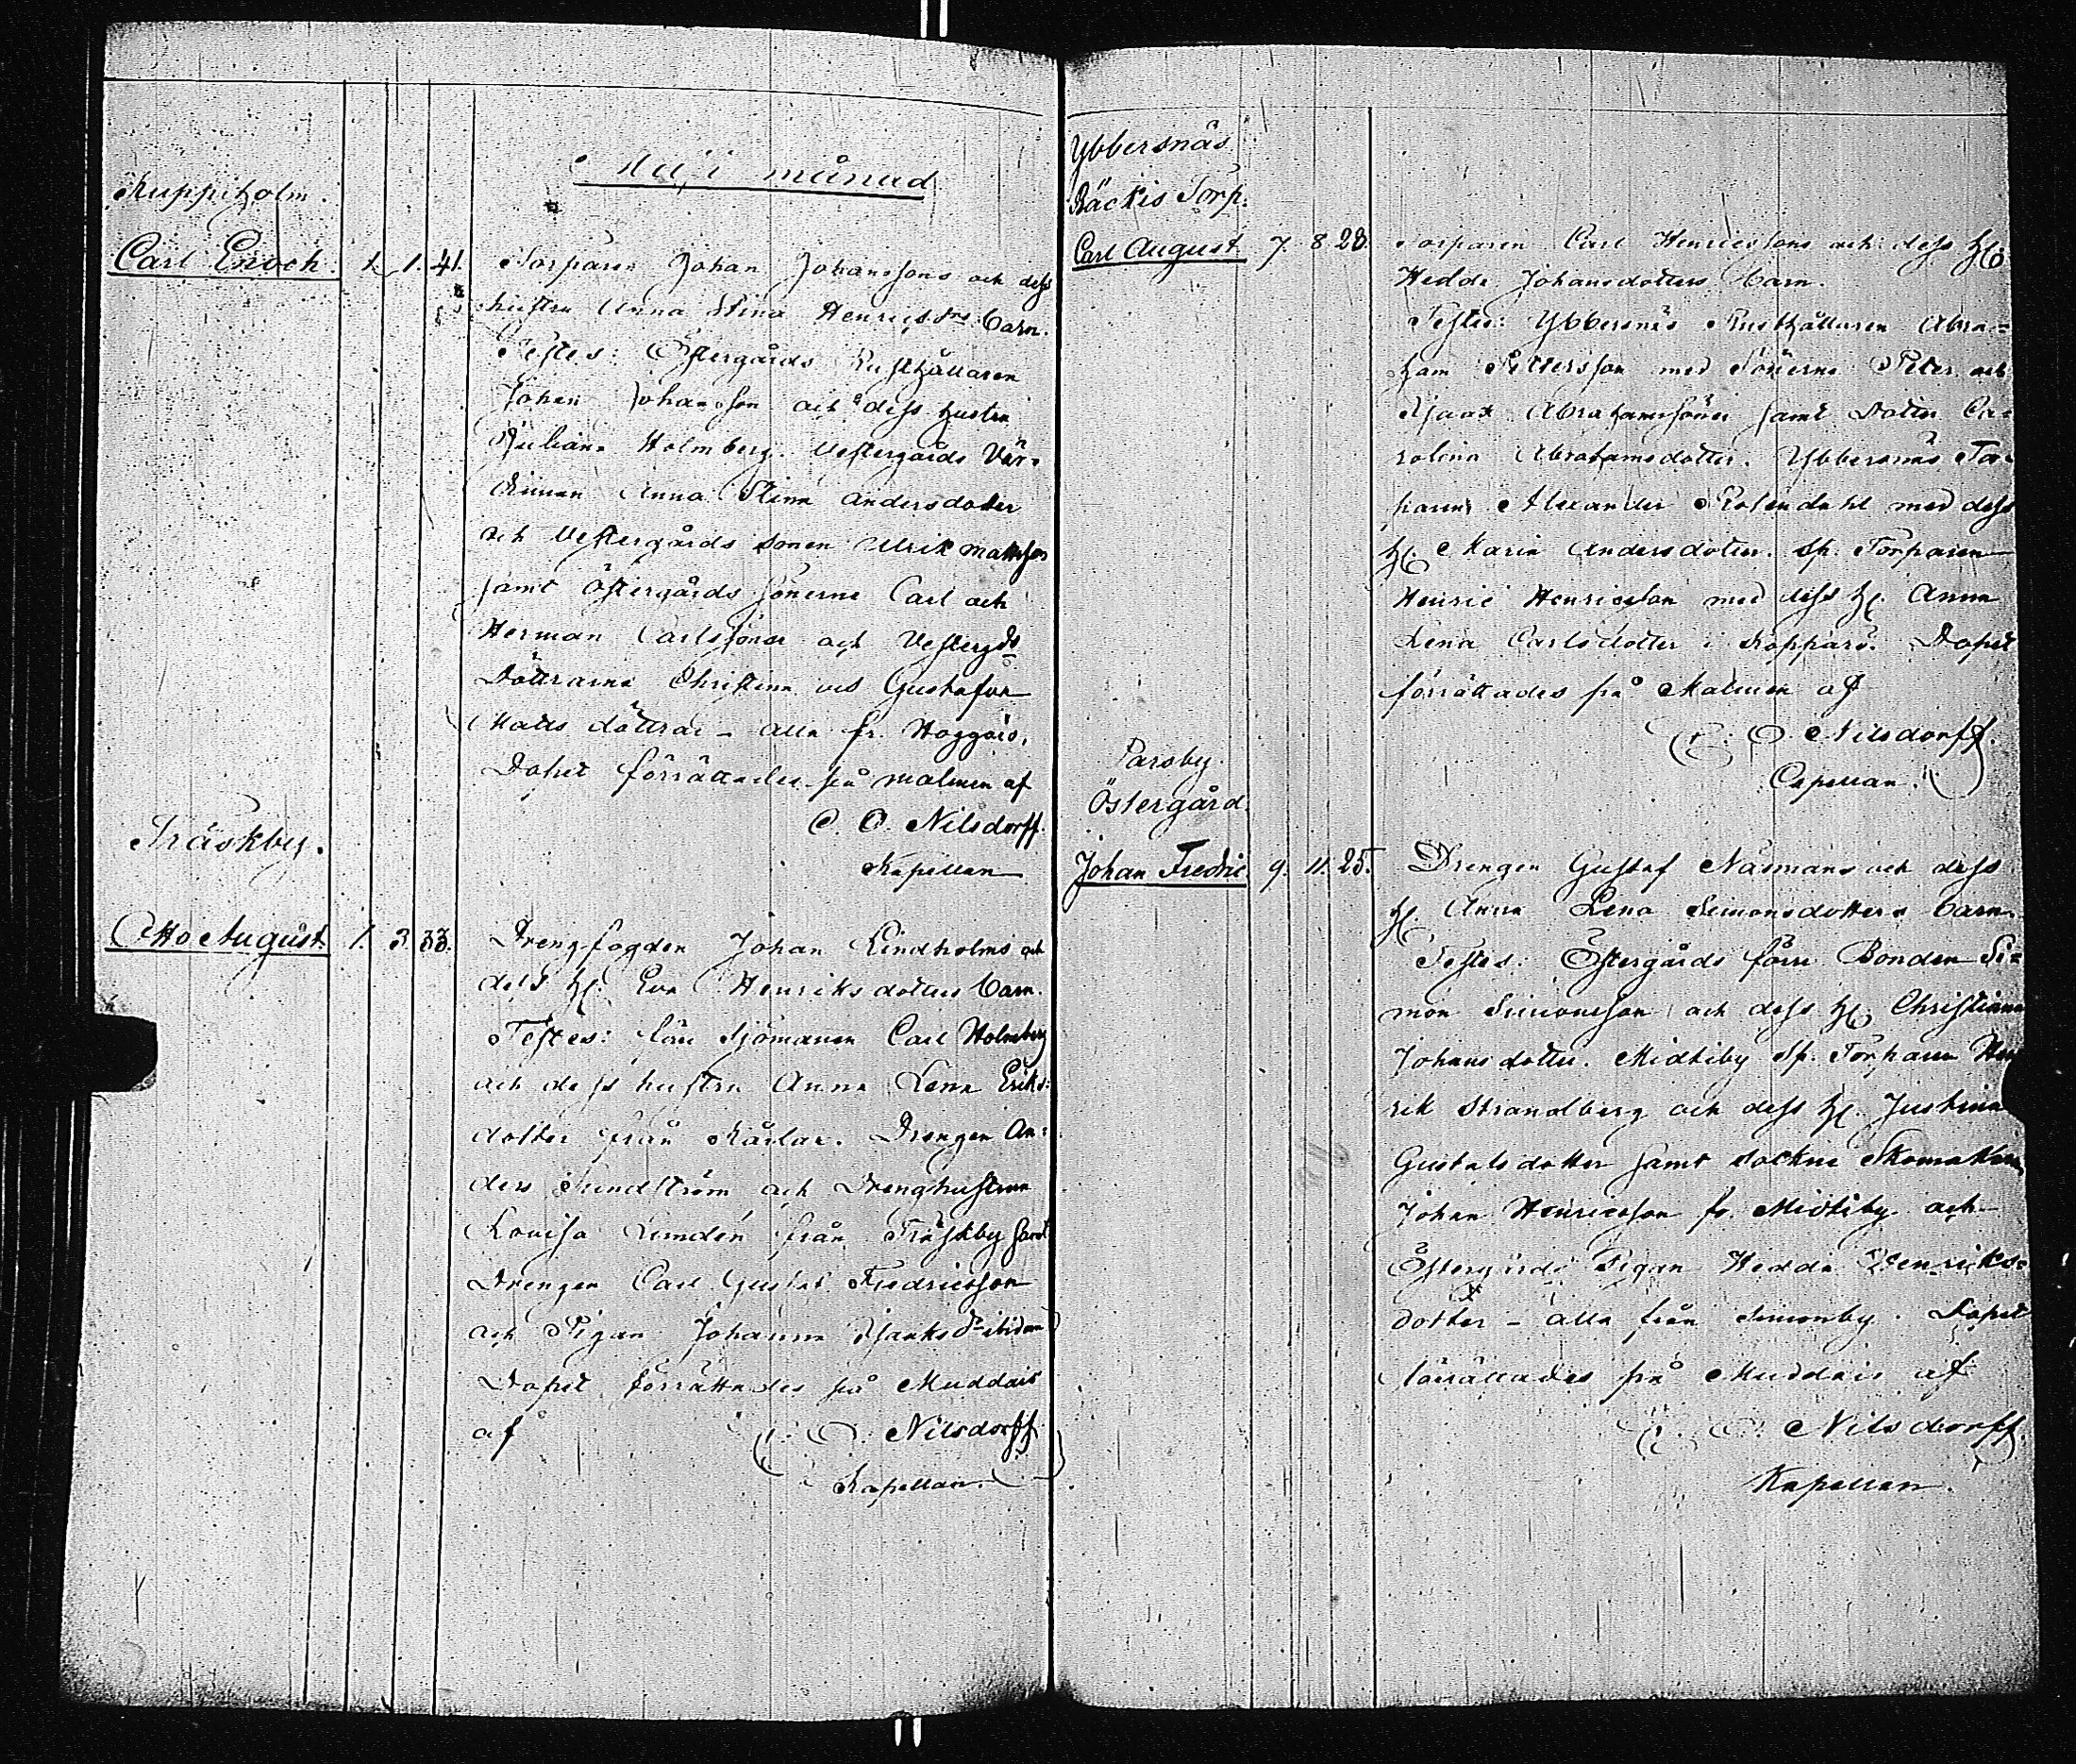 Maji månad
Kuppiholm.
Carl Enoch. 1. 1. 41. Torparen Johan Johanssons och dess
hustru Anna Stina Henricsdrs barn.
Testes: Östergårds Rusthållaren
Johan Johansson och dess hustru
Juliana Holmberg. Vestergårds Vär-
dinnan Anna Stina Andersdotter
och Vestergårds sonen Ulrik Mattsson
samt Östergårds sönerne Carl och
Herman Carlssöner och Vestergds
Döttrarne Christina och Gustafva
Matts döttrar - alla fr. Haggais,
Dopet förrättades på malmen af
C. O. Nilsdorff.
Kapellan
Träskby.
Otto August. 1. 3. 33. Drengfogden Johan Lindholms och
dess h. Eva Henriksdotters barn.
Testes: förre Sjömannen Carl Holmberg
och dess hustru Anna Lena Eriks-
dotter från Kårlax. Drengen An-
ders Sundström och Drenghustrun
Lovisa Lindén från Träskby samt
Drengen Carl Gustaf Fredricsson
och Pigan Johanna Isaksdr ibidem
Dopet förrättades på Muddais
af C. O. Nilsdorff
Kapellan.
Ybbersnäs
Bäckis Torp.
Carl August 7. 8. 28. Torparen Carl Henricssons och dess h.
Hedda Johansdotters barn.
Testes: Ybbersnäs Rusthållaren Abra-
ham Pettersson med Sönerne Peter och
Isaac Abrahamssöner samt Dotter Ca-
rolina Abrahamsdotter. Ybbersnäs Tor-
paren Alexander Rosendahl med dess
h. Maria Andersdotter. Sp. Torparen
Henric Henricsson med dess h. Anna
Lena Carlsdotter i Koppars. Dopet
förrättades på Malmen af
C. O. Nilsdorff.
Capellan.
Parsby.
Östergård.
Johan Fredric. 9. 11. 25. Drengen Gustaf Näsmans och dess
h. Anna Lena Simonsdotters barn.
Testes: Östergårds förre Bonden Si-
mon Simonsson och dess h. Christina
Johansdotter. Midtiby Sp. Torparen Hen
rik Strandberg och dess h. Justina
Gustafsdotter samt sockne Skomakaren
Johan Henricsson fr. Midtiby och
Östergårds Pigan Hedda Henriks-
dotter - alla från Simonby. Dopet
förrättades på Muddais af
C. O. Nilsdorff.
Kapellan.